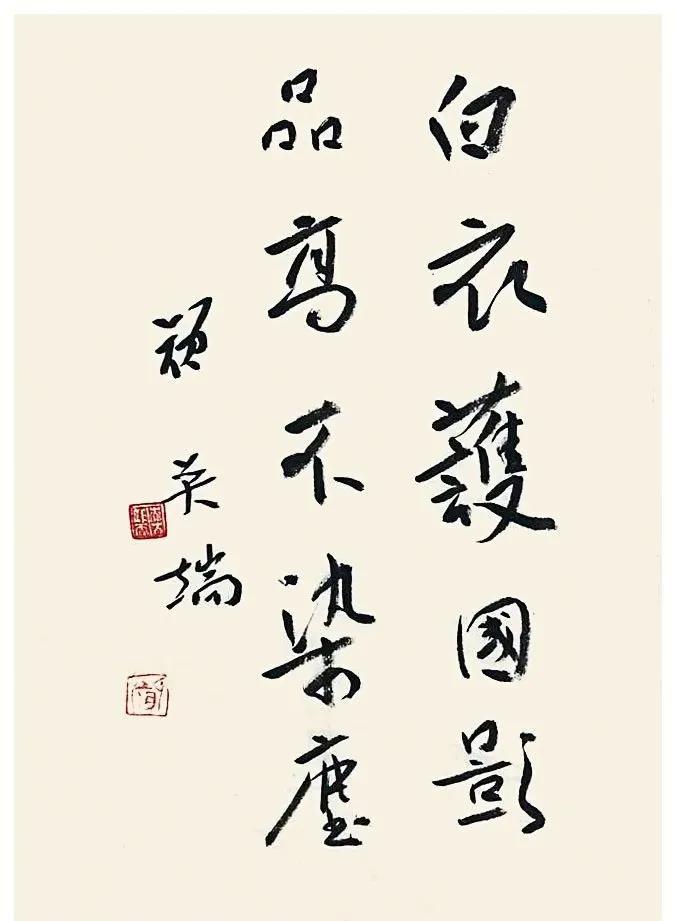 白衣護國影
品高不染塵
英瑞